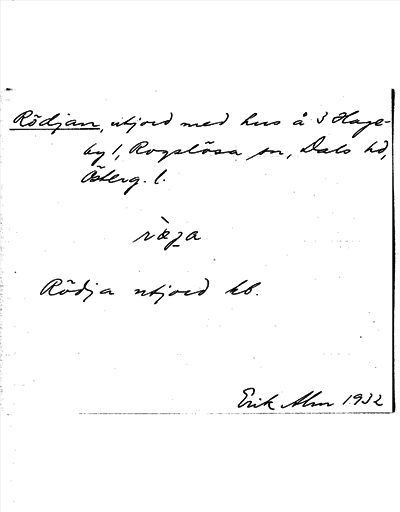 Rödjan, utjord med hus å 3 Hage-
by /, Rogslösa sn, Dals hd,
Österg. l.
ræ̀ʒa
Rödja utjord kb.
Erik Alm 1932